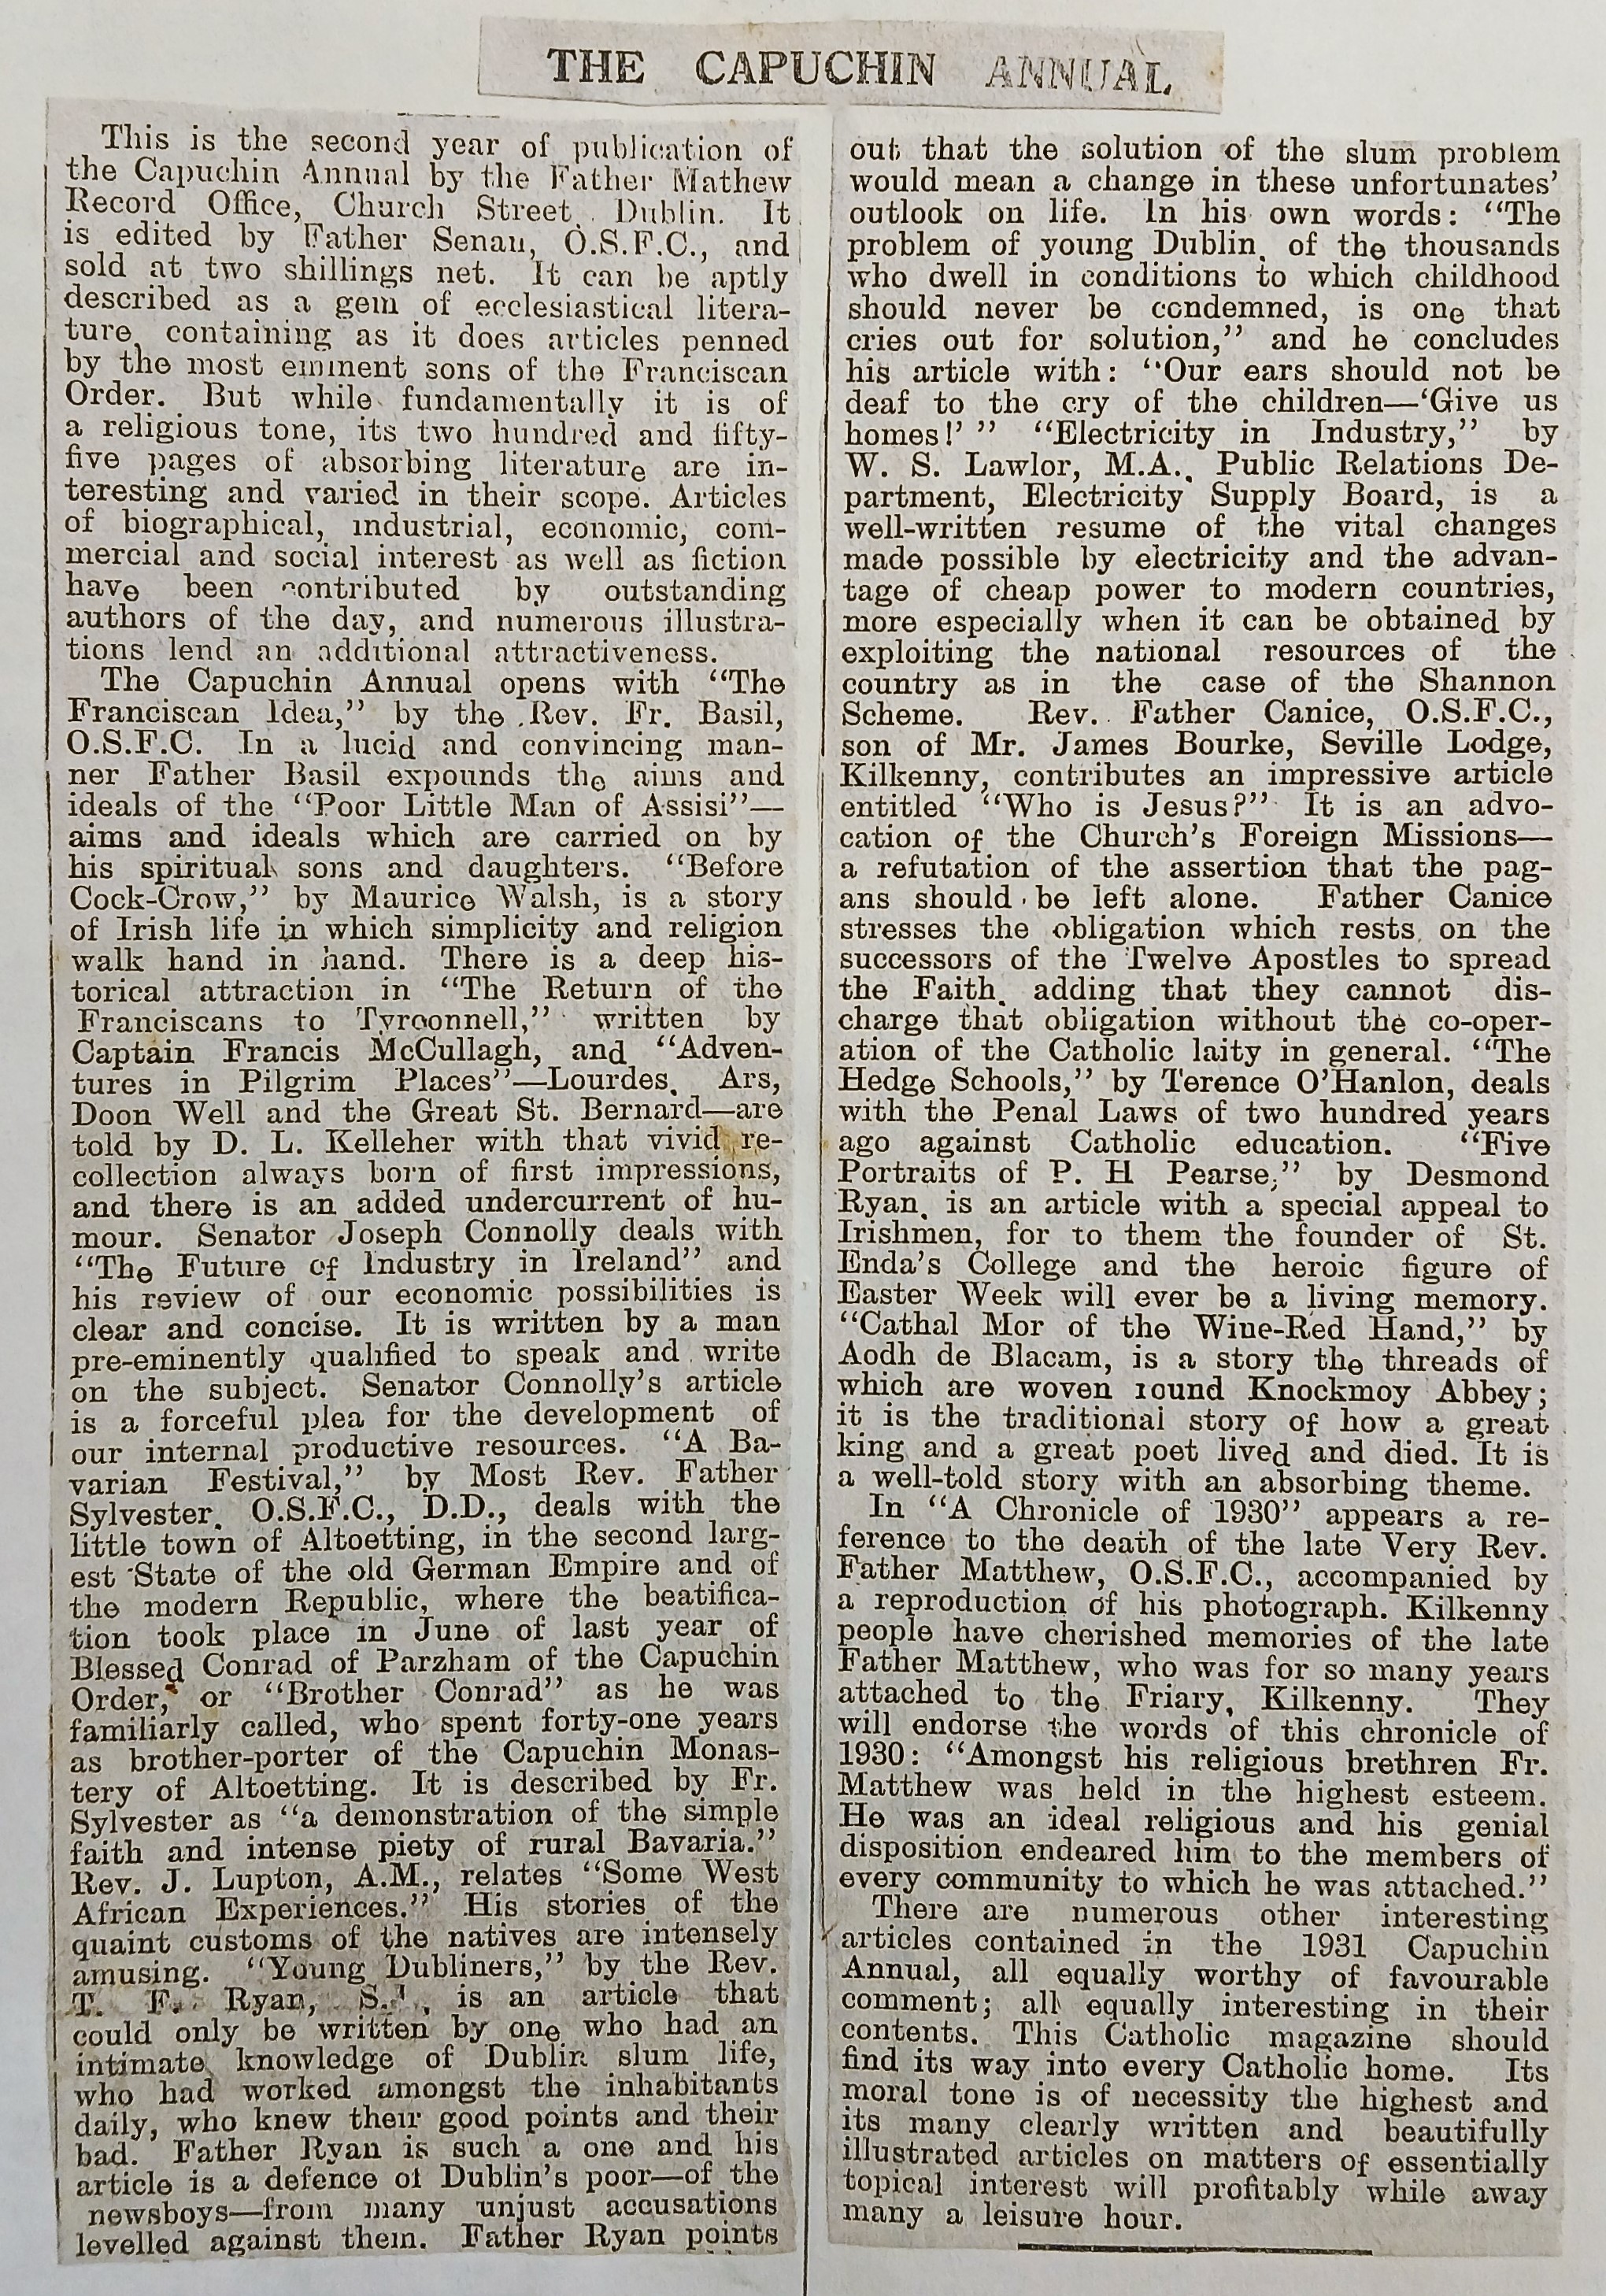 THE CAPUCHIN ANNUAL
This is the second year of publication of
the Capuchin Annual by the Father Mathew
Record Office, Church Street, Dublin. It
is edited by Father Senan, O.S.F.C., and
sold at two shillings net. It can be aptly
described as a gem of ecclesiastical litera-
ture, containing as it does articles penned
by the most eminent sons of the Franciscan
Order. But while fundamentally it is of
a religious tone, its two hundred and fifty-
five pages of absorbing literature are in-
teresting and varied in their scope. Articles
of biographical, industrial, economic, com-
mercial and social interest as well as fiction
have been contributed by outstanding
authors of the day, and numerous illustra-
tions lend an additional attractiveness.
The Capuchin Annual opens with "The
Franciscan Idea," by the Rev. Fr. Basil,
O.S.F.C. In a lucid and convincing man-
ner Father Basil expounds the aims and
ideals of the "Poor Little Man of Assisi"—
aims and ideals which are carried on by
his spiritual sons and daughters. "Before
Cock-Crow," by Maurice Walsh, is a story
of Irish life in which simplicity and religion
walk hand in hand. There is a deep his-
torical attraction in "The Return of the
Franciscans to Tyroonnell," written by
Captain Francis McCullagh, and "Adven-
tures in Pilgrim Places"—Lourdes, Ars,
Doon Well and the Great St. Bernard—are
told by D. L. Kelleher with that vivid re-
collection always born of first impressions,
and there is an added undercurrent of hu-
mour. Senator Joseph Connolly deals with
"The Future of Industry in Ireland" and
his review of our economic possibilities is
clear and concise. It is written by a man
pre-eminently qualified to speak and write
on the subject. Senator Connolly's article
is a forceful plea for the development of
our internal productive resources. "A Ba-
varian Festival," by Most Rev. Father
Sylvester, O.S.F.C., D.D., deals with the
little town of Altoetting, in the second larg-
est State of the old German Empire and of
the modern Republic, where the beatifica-
tion took place in June of last year of
Blessed Conrad of Parzham of the Capuchin
Order, or "Brother Conrad" as he was
familiarly called, who spent forty-one years
as brother-porter of the Capuchin Monas-
tery of Altoetting. It is described by Fr.
Sylvester as "a demonstration of the simple
faith and intense piety of rural Bavaria."
Rev. J. Lupton, A.M., relates "Some West
African Experiences." His stories of the
quaint customs of the natives are intensely
amusing. "Young Dubliners," by the Rev.
T. F. Ryan, S.J., is an article that
could only be written by one who had an
intimate knowledge of Dublin slum life,
who had worked amongst the inhabitants
daily, who knew their good points and their
bad. Father Ryan is such a one and his
article is a defence of Dublin's poor—of the
newsboys—from many unjust accusations
levelled against them. Father Ryan points
out that the solution of the slum problem
would mean a change in these unfortunates'
outlook on life. In his own words: "The
problem of young Dublin, of the thousands
who dwell in conditions to which childhood
should never be condemned, is one that
cries out for solution," and he concludes
his article with: "Our ears should not be
deaf to the cry of the children—'Give us
homes!' " "Electricity in Industry," by
W. S. Lawlor, M.A., Public Relations De-
partment, Electricity Supply Board, is a
well-written resume of the vital changes
made possible by electricity and the advan-
tage of cheap power to modern countries,
more especially when it can be obtained by
exploiting the national resources of the
country as in the case of the Shannon
Scheme. Rev. Father Canice, O.S.F.C.,
son of Mr. James Bourke, Seville Lodge,
Kilkenny, contributes an impressive article
entitled "Who is Jesus?" It is an advo-
cation of the Church's Foreign Missions—
a refutation of the assertion that the pag-
ans should be left alone. Father Canice
stresses the obligation which rests on the
successors of the Twelve Apostles to spread
the Faith, adding that they cannot dis-
charge that obligation without the co-oper-
ation of the Catholic laity in general. "The
Hedge Schools," by Terence O'Hanlon, deals
with the Penal Laws of two hundred years
ago against Catholic education. "Five
Portraits of P. H Pearse," by Desmond
Ryan, is an article with a special appeal to
Irishmen, for to them the founder of St.
Enda's College and the heroic figure of
Easter Week will ever be a living memory.
"Cathal Mor of the Wine-Red Hand," by
Aodh de Blacam, is a story the threads of
which are woven round Knockmoy Abbey;
it is the traditional story of how a great
king and a great poet lived and died. It is
a well-told story with an absorbing theme.
In "A Chronicle of 1930" appears a re-
ference to the death of the late Very Rev.
Father Matthew, O.S.F.C., accompanied by
a reproduction of his photograph. Kilkenny
people have cherished memories of the late
Father Matthew, who was for so many years
attached to the Friary, Kilkenny. They
will endorse the words of this chronicle of
1930: "Amongst his religious brethren Fr.
Matthew was held in the highest esteem.
He was an ideal religious and his genial
disposition endeared him to the members of
every community to which he was attached."
There are numerous other interesting
articles contained in the 1931 Capuchin
Annual, all equally worthy of favourable
comment; all equally interesting in their
contents. This Catholic magazine should
find its way into every Catholic home. Its
moral tone is of necessity the highest and
its many clearly written and beautifully
illustrated articles on matters of essentially
topical interest will profitably while away
many a leisure hour.